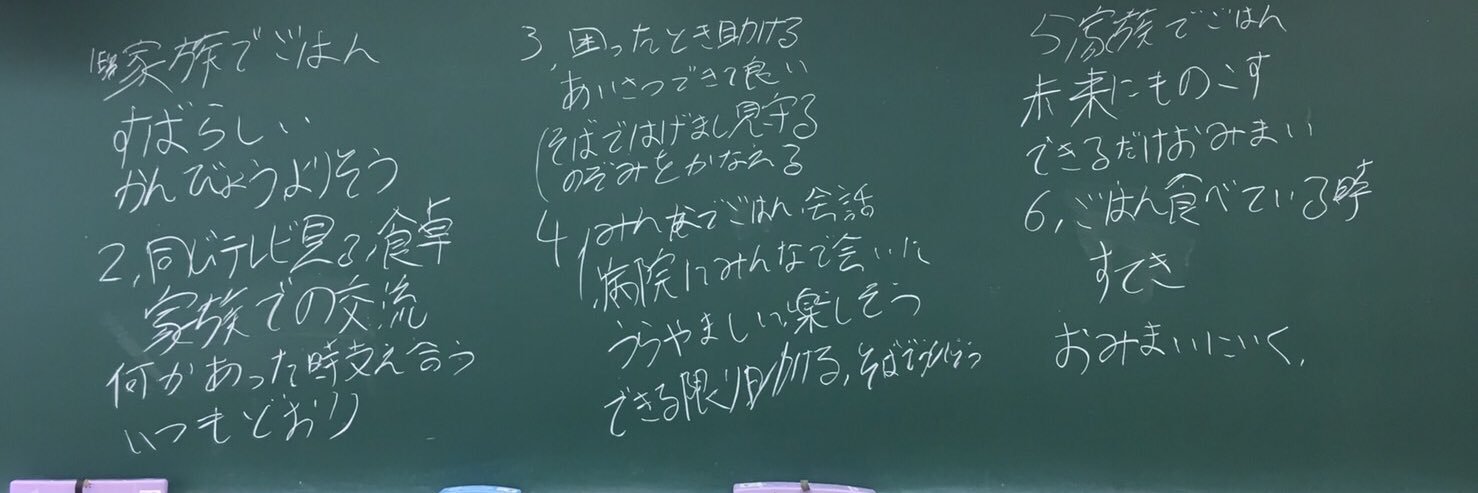 1班家族でごはん
すばらしい
かんびょうよりそう
2,同じテレビ見る,食卓
家族での交流
何かあった時支え合う
いつもどおり
3,困ったとき助ける
あいさつできて良い
(そばではげまし見守る
のぞみをかなえる
4,みんなでごはん,会話
病院にみんなで会いに
うらやましい,楽しそう
できる限り助ける,そばで
5家族でごはん
未来にものこす
できるだけおみまい
6,ごはん食べている時
すてき
おみまいにいく,